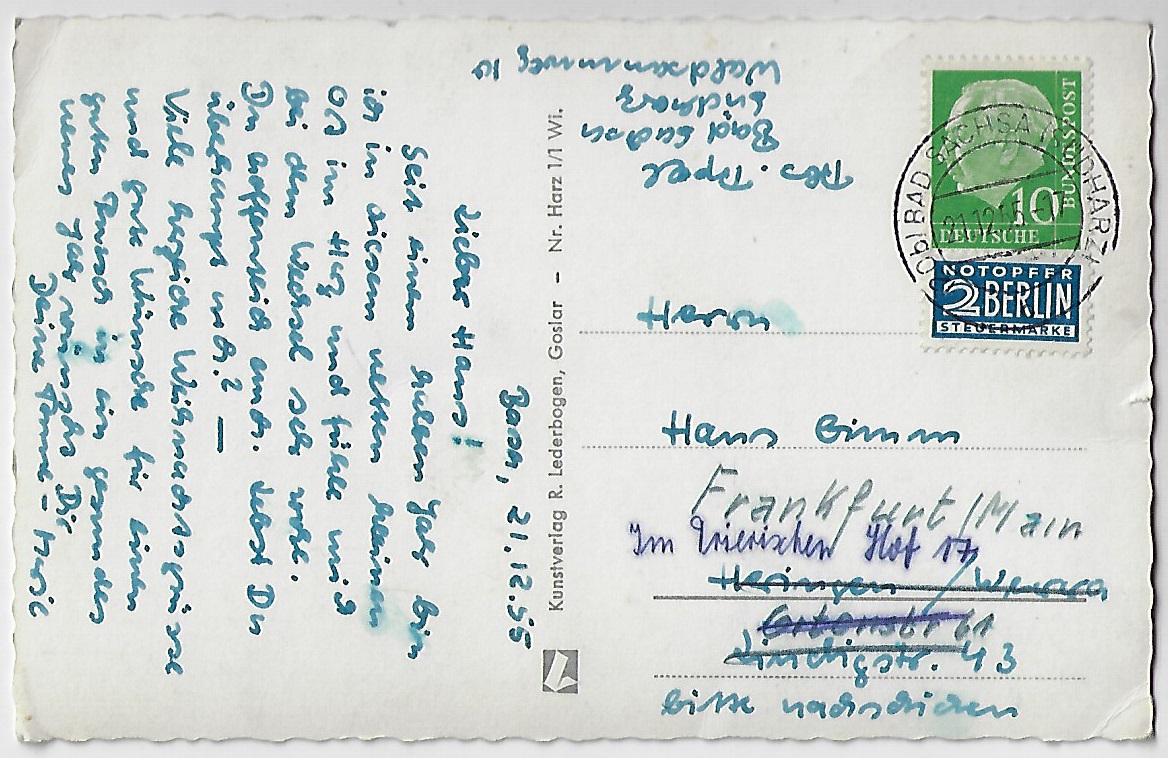 21.12.55
Lieber Hans!
Seit einem halben Jahr bin
ich in diesem netten kleinen
Ort im Harz und fühle mich
bei dem Wechsel sehr wohl.
Du hoffentlich auch. Lebst Du
überhaupt noch? —
Viele herzliche Weihnachtsgrüsse
und gute Wünsche für einen
guten Rutsch in ein gesundes
neues Jahr wünscht Dir
Deine
Kunstverlag R. Lederbogen, Goslar – Nr. Harz 1/1 Wi.
Abs. Appel
Bad Sachsa
Südharz
Waldsaumweg 10
BUNDESPOST
10
DEUTSCHE
BAD SACHSA (SÜDHARZ)
21.12.55-17
NOTOPFER
2 BERLIN
STEUERMARKE
Herrn
Hans Grimm
Frankfurt/Main
Im Trierischen Hof 17
Heringen/Werra
61
Lindigstr. 43
bitte nachschicken